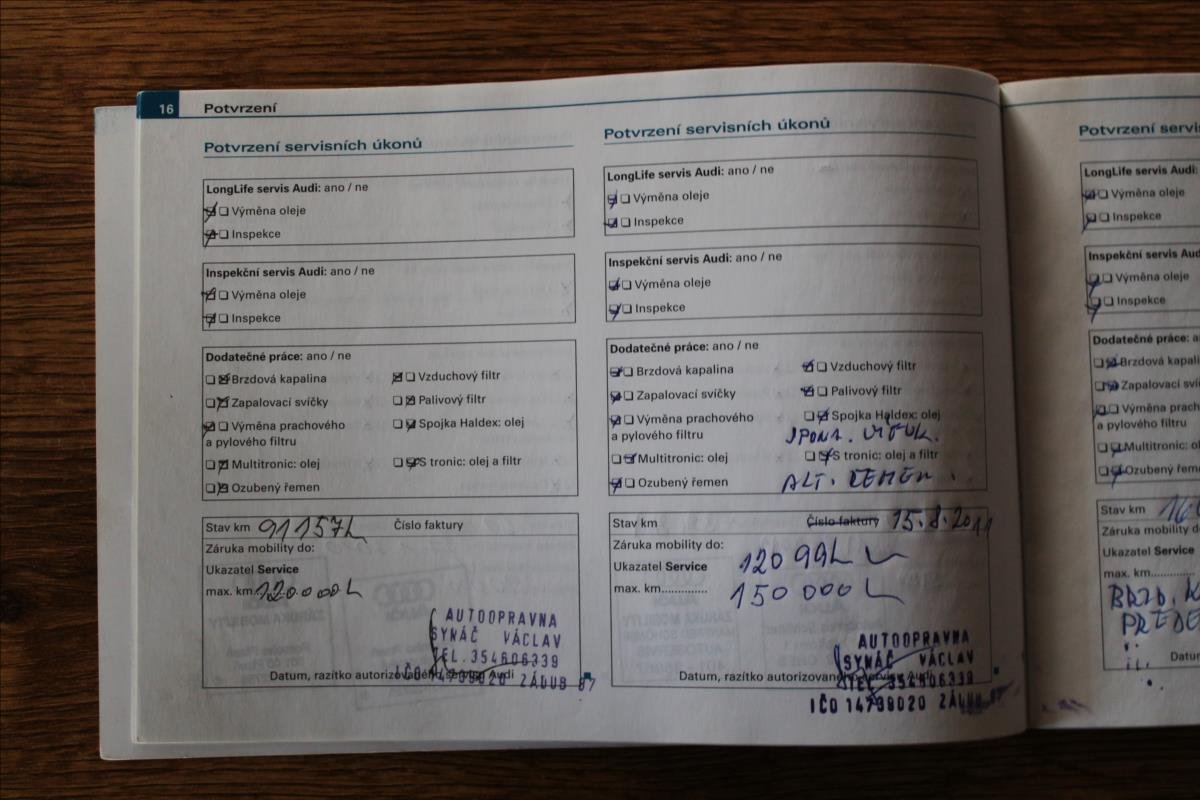 16 Potvrzení
Potvrzení servisních úkonů
LongLife servis Audi: ano / ne
Výměna oleje
Inspekce
Inspekční servis Audi: ano / ne
Výměna oleje
Inspekce
Dodatečné práce: ano / ne
Brzdová kapalina Vzduchový filtr
Zapalovací svíčky Palivový filtr
Výměna prachového Spojka Haldex: olej
a pylového filtru
Multitronic: olej S tronic: olej a filtr
Ozubený řemen
Stav km 91157 Číslo faktury
Záruka mobility do:
Ukazatel Service
max. km. 120000
AUTOOPRAVNA
SYNÁČ VÁCLAV
TEL. 354606339
Datum, razítko autorizovaného servisu Audi
IČO 14739020 ZÁDUB 87
Potvrzení servisních úkonů
LongLife servis Audi: ano / ne
Výměna oleje
Inspekce
Inspekční servis Audi: ano / ne
Výměna oleje
Inspekce
Dodatečné práce: ano / ne
Brzdová kapalina Vzduchový filtr
Zapalovací svíčky Palivový filtr
Výměna prachového Spojka Haldex: olej
a pylového filtru
Multitronic: olej S tronic: olej a filtr
Ozubený řemen ALT. ŘEMEN.
Stav km Číslo faktury 15.8.2011
Záruka mobility do:
Ukazatel Service 12099
max. km.............. 150000
AUTOOPRAVNA
SYNÁČ VÁCLAV
TEL 354606339
Datum, razítko autorizovaného servisu Audi
IČO 14739020
Potvrzení servi
LongLife servis Audi:
Výměna oleje
Inspekce
Inspekční servis Aud
Výměna oleje
Inspekce
Dodatečné práce: a
Brzdová kapalina
Zapalovací svíčk
Výměna prachov
a pylového filtru
Multitronic: ol
Ozubený řeme
Stav km 16
Záruka mobility d
Ukazatel Service
max. km............
BRZD. K
PŘEDE
Datu